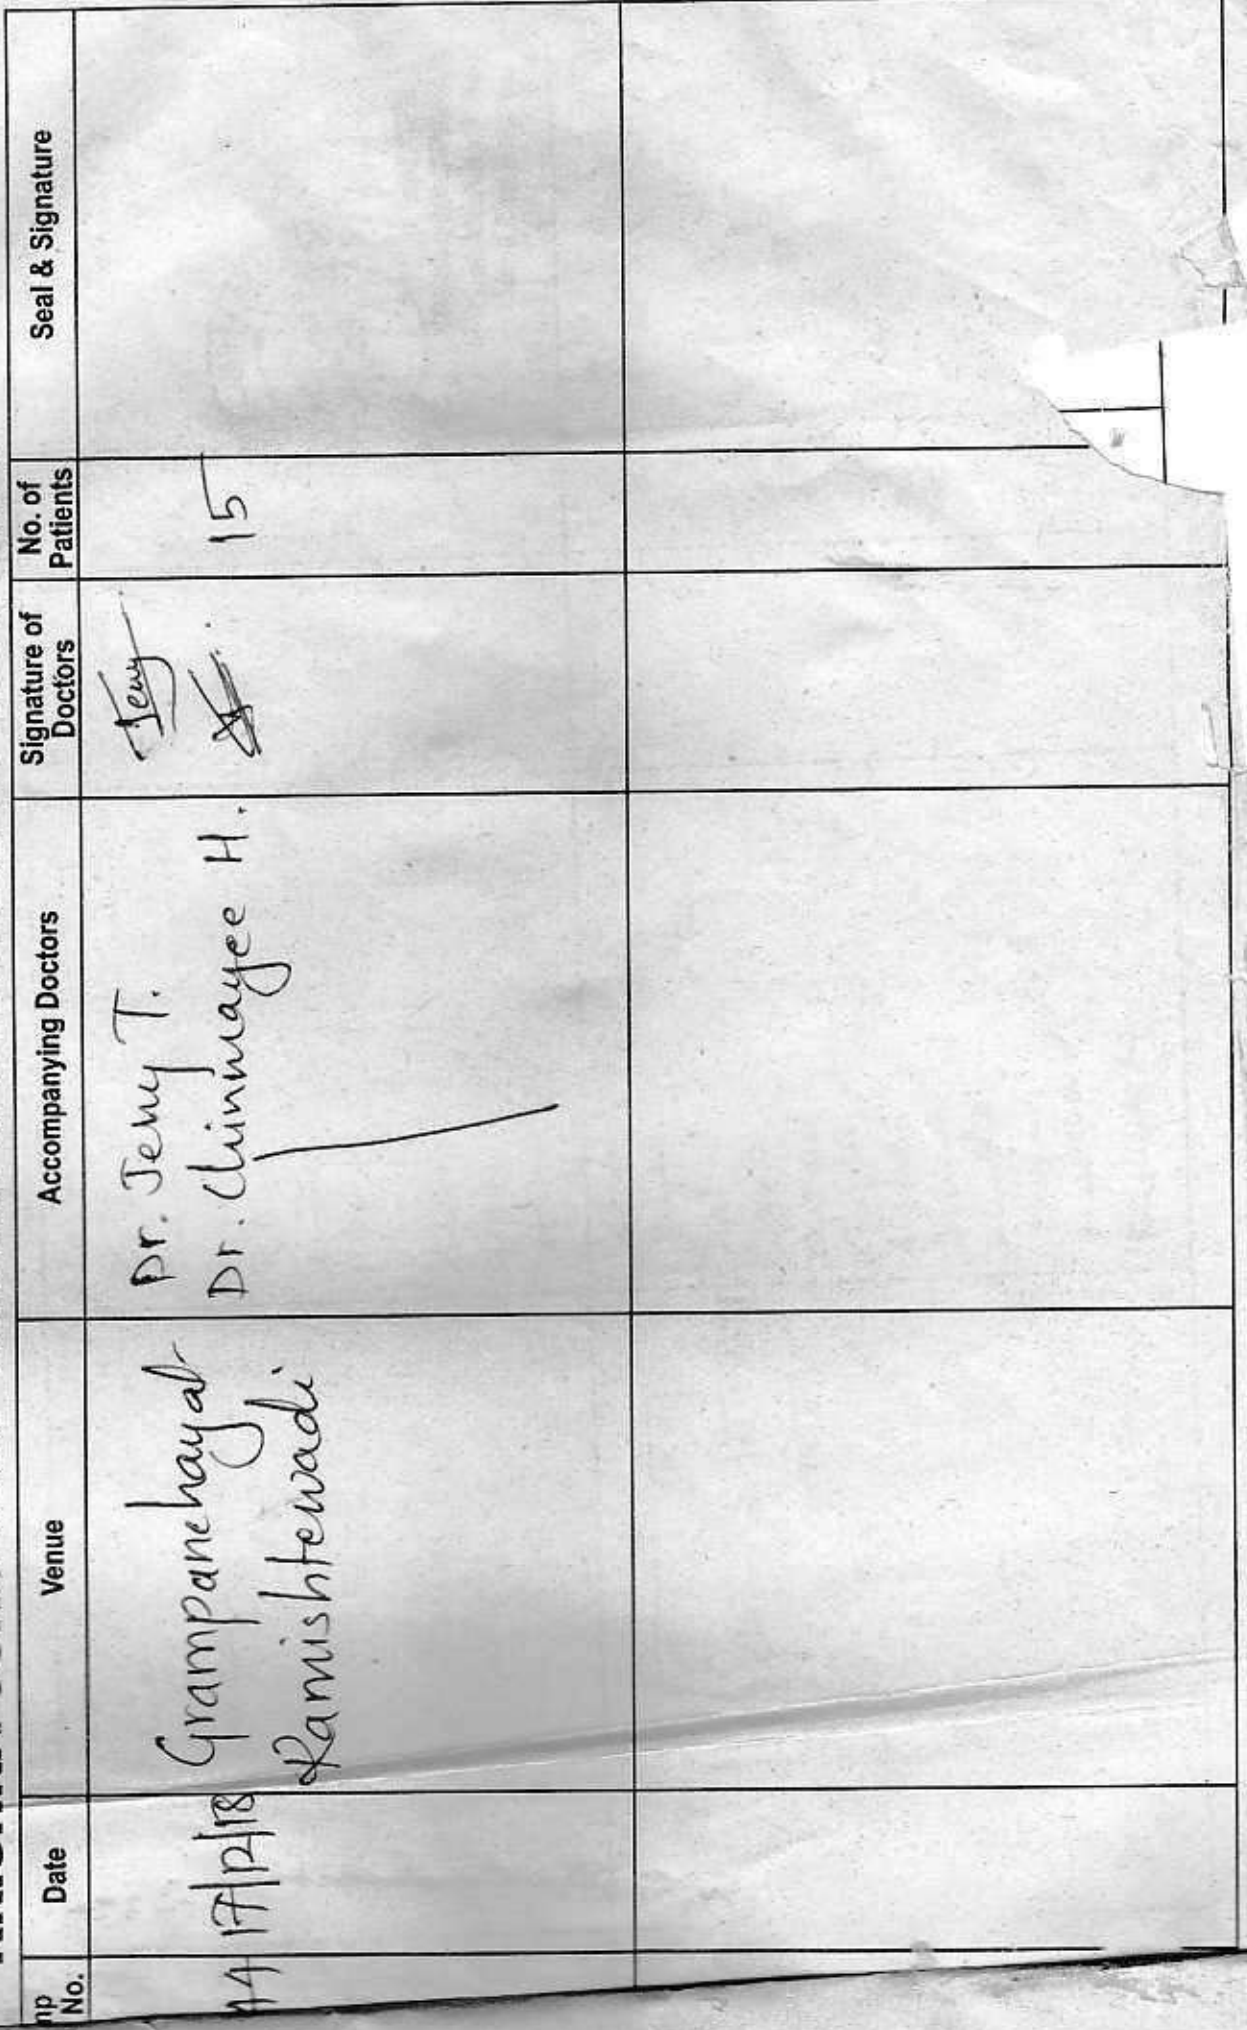 No.
Date
Venue
Accompanying Doctors
Signature of
Doctors
No. of
Patients
Seal & Signature
17/12/18
Grampanchayat
Ramishtewadi
Dr. Jeny T.
Dr. Chinmayee H.
Jeny
15